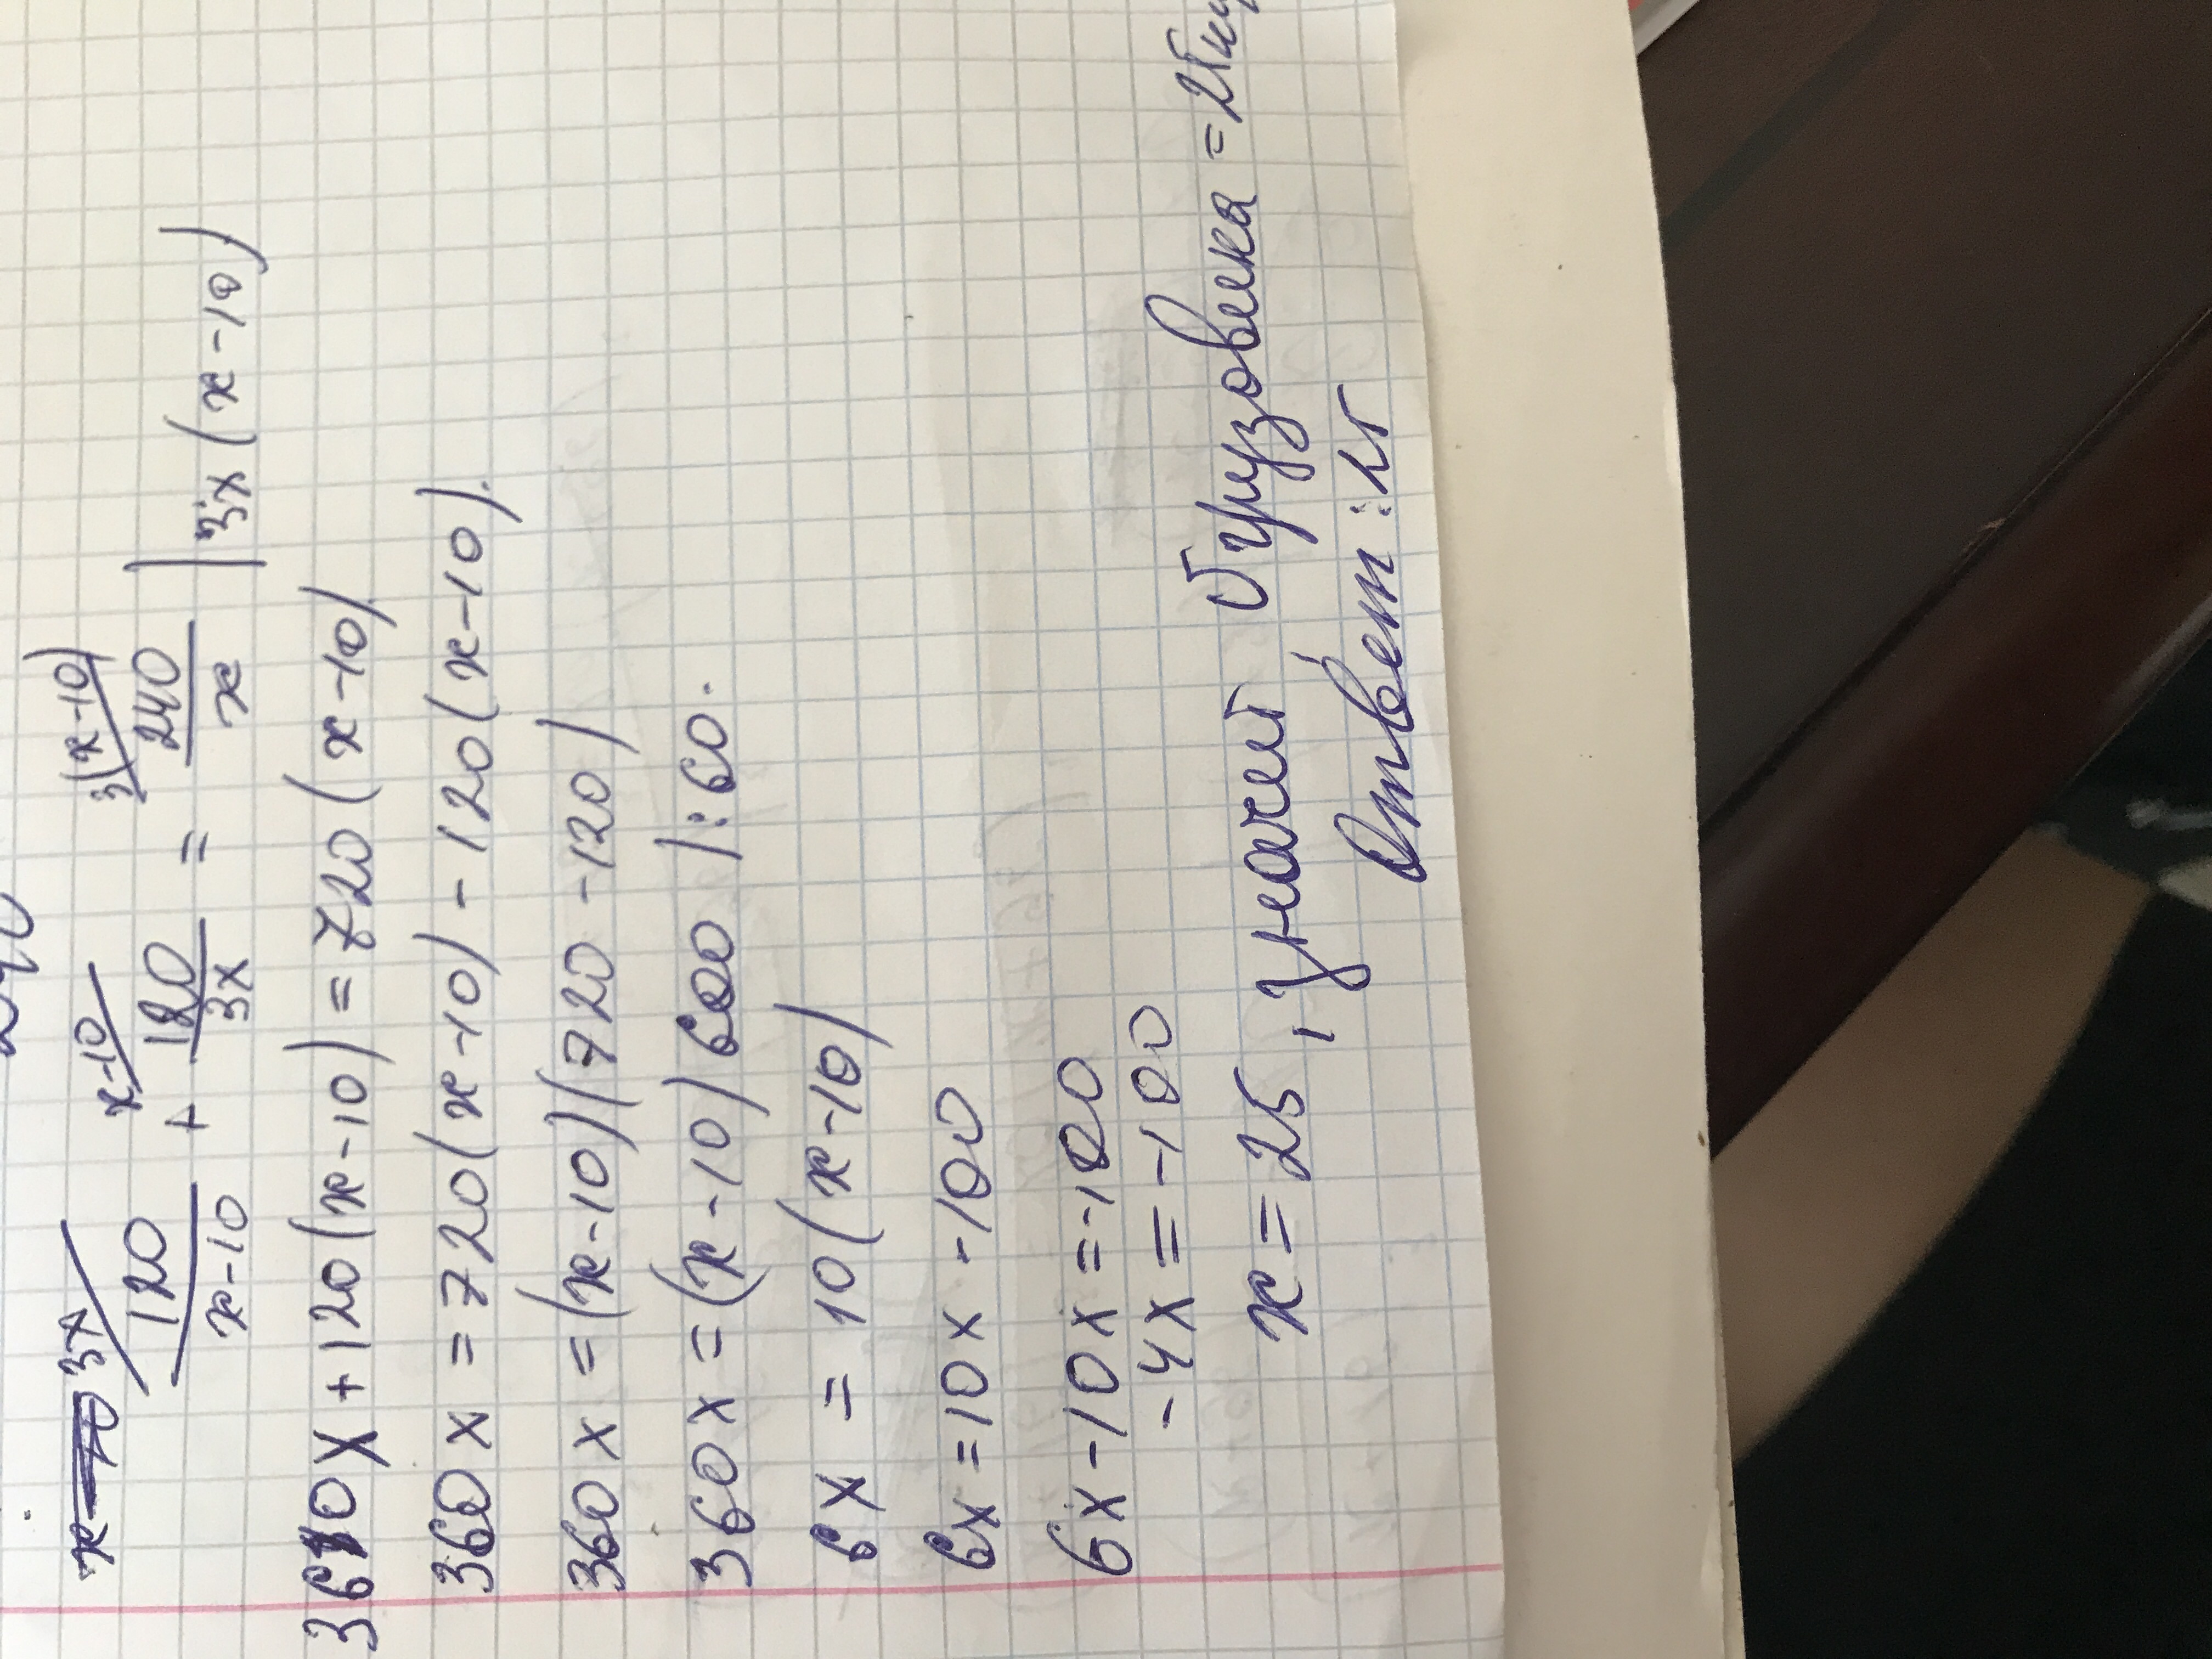 3x x-10 3(x-10)
120/x-10 + 120/3x = 240/x | 3x(x-10)
360x+120(x-10)=720(x-10)
360x=720(x-10)-120(x-10).
360x=(x-10)(720-120)
360x=(x-10)600 |:60.
6x = 10(x-10)
6x=10x-100
6x-10x=-100
-4x=-100
x=25, значит грузовика =
Ответ: